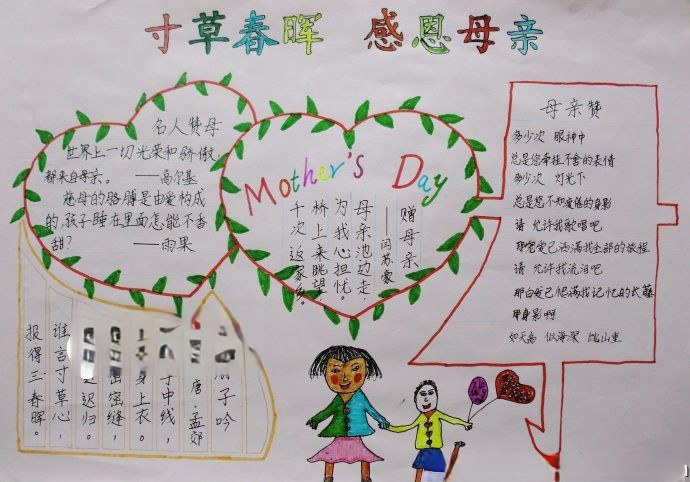 寸草春晖 感恩母亲
名人赞母
世界上一切光荣和骄傲,
都来自母亲。 ——高尔基
慈母的胳膊是由爱构成
的,孩子睡在里面怎能不香
甜? ——雨果
Mother's Day
赠母亲
——闫苏家
母亲池边走,
为我心担忧。
桥上来眺望
千次返家乡。
母亲赞
多少次 眼神中
总是您牵挂不舍的表情
多少次 灯光下
总是您不知疲倦的身影
请 允许我歌唱吧
那爱已洒满我全部的旅程
请 允许我流泪吧
那白发已爬满我记忆的长藤
那身影啊
如天高 似海深 比山重
子吟
唐·孟郊
手中线,
身上衣。
密缝,
迟归。
谁言寸草心,
报得三春晖。